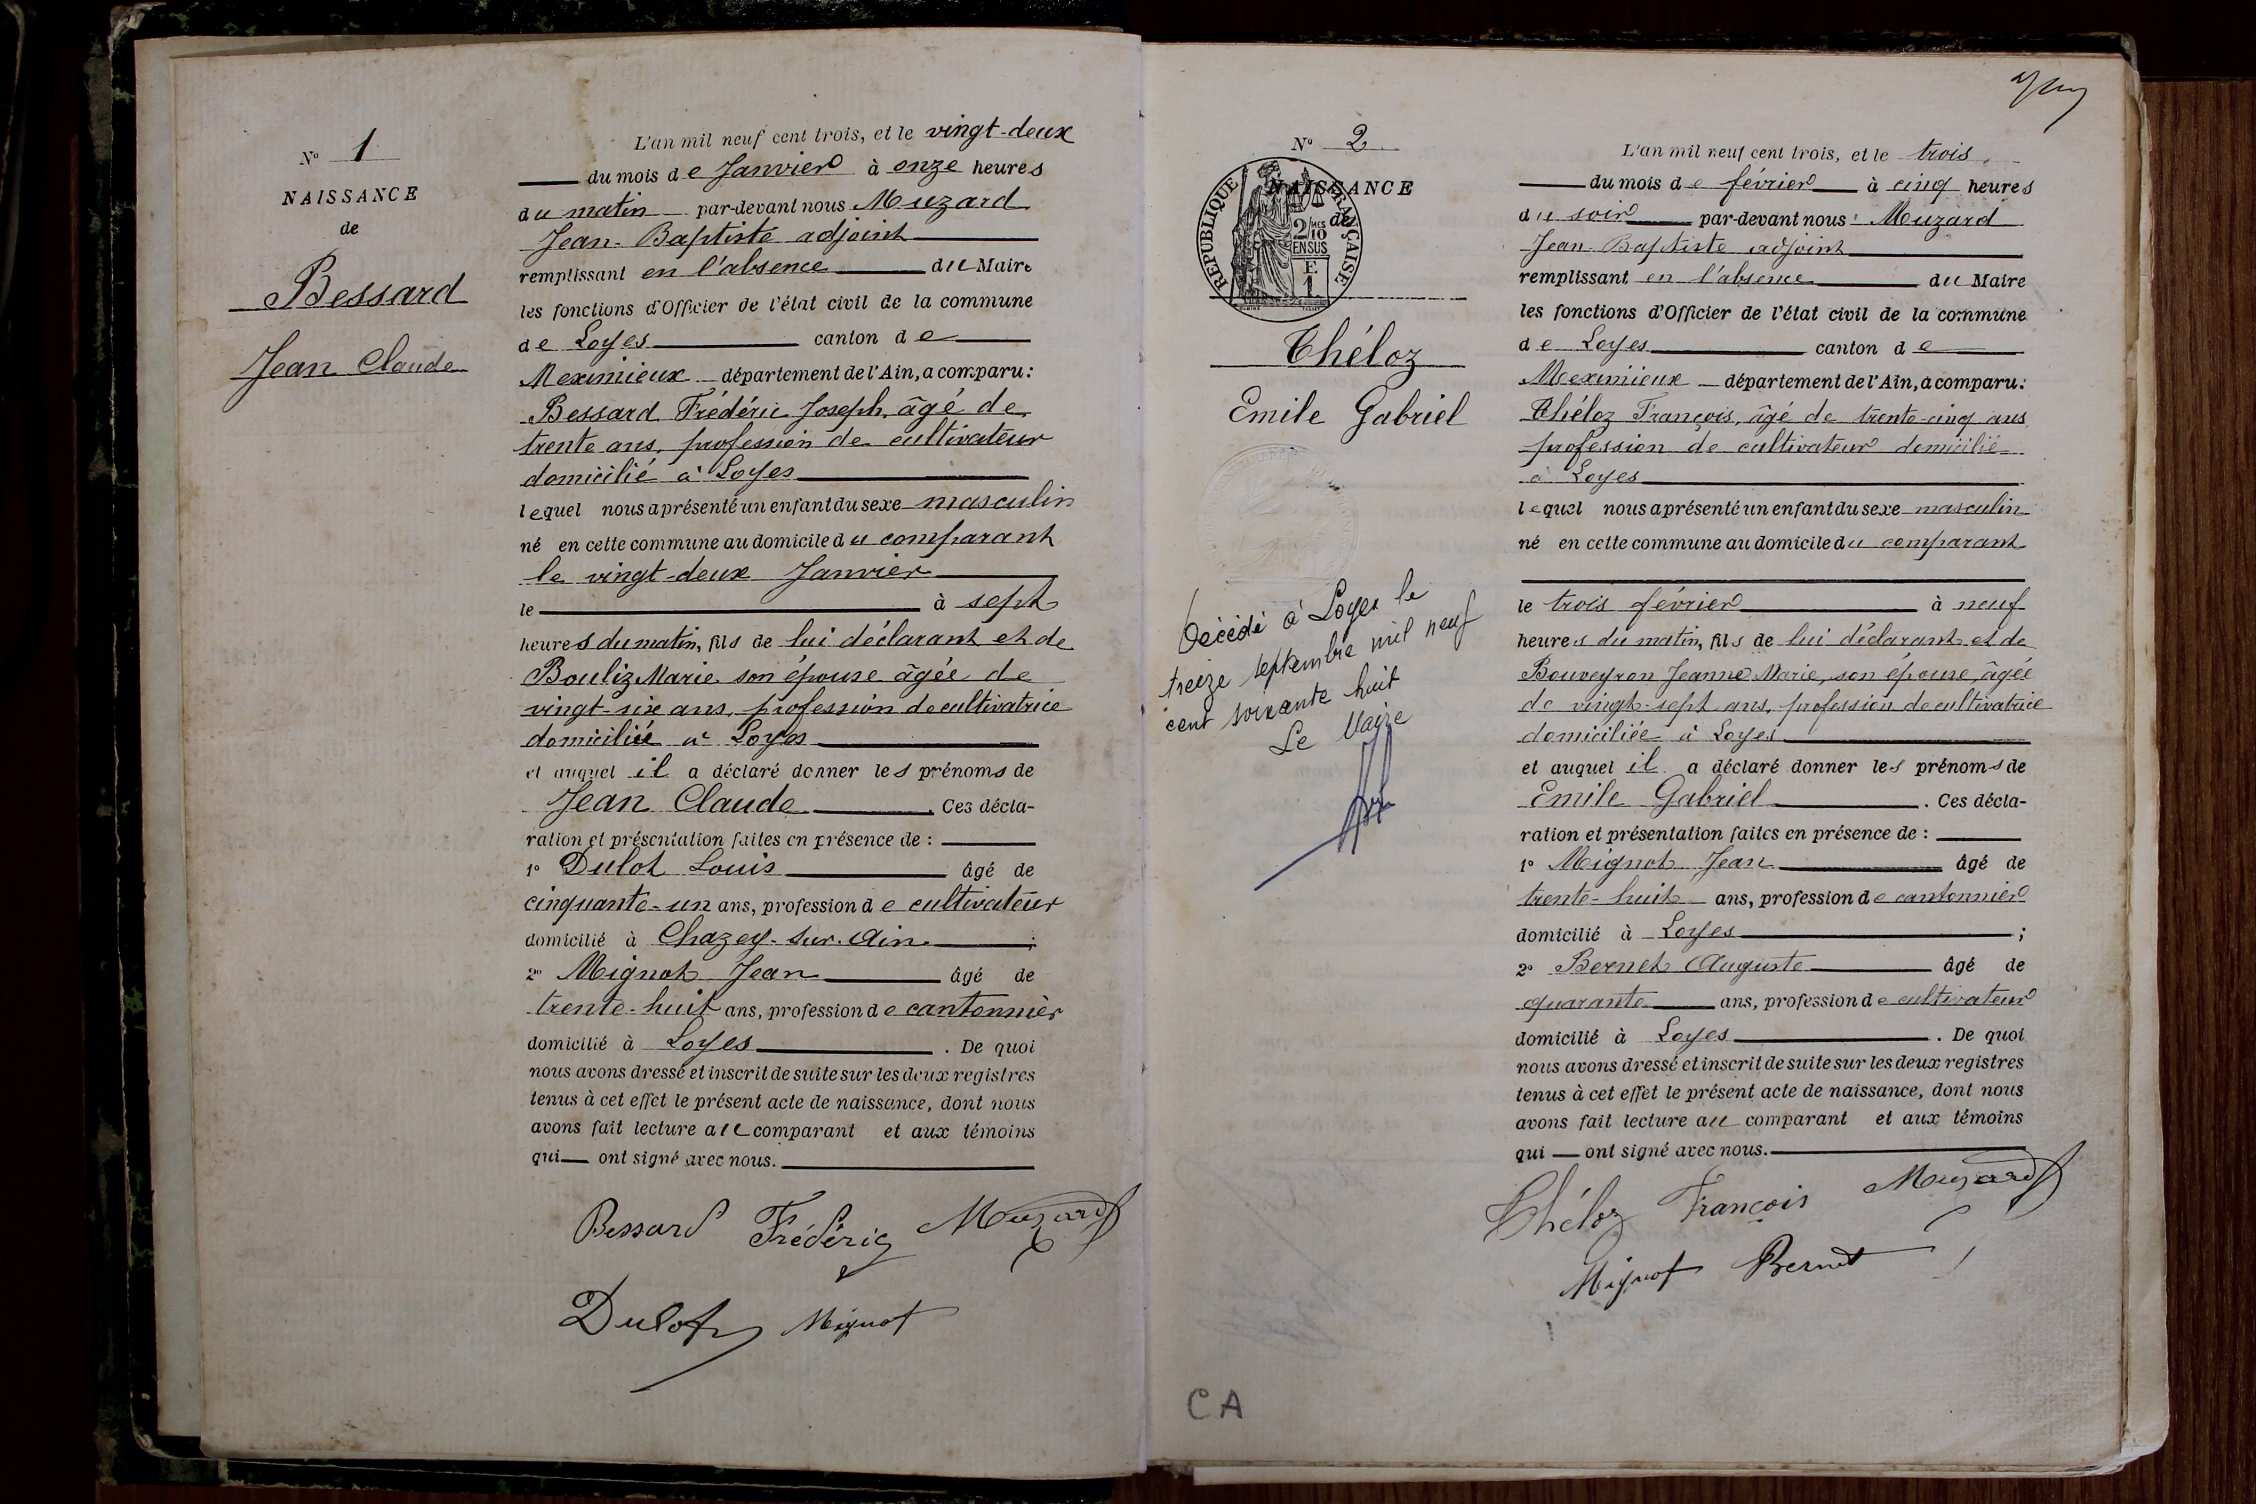 N° 1
NAISSANCE
de
Bessard
Jean Claude
L'an mil neuf cent trois, et le vingt-deux
du mois de Janvier à onze heures
du matin par-devant nous Muzard
Jean-Baptiste adjoint
remplissant en l'absence du Maire
les fonctions d'Officier de l'état civil de la commune
de Loyes canton de
Meximieux département de l'Ain, a comparu:
Bessard Frédéric Joseph, âgé de
trente ans, profession de cultivateur
domicilié à Loyes
lequel nous a présenté un enfant du sexe masculin
né en cette commune au domicile du comparant
le vingt-deux Janvier
le à sept
heures du matin, fils de lui déclarant et de
Bouliz Marie son épouse âgée de
vingt-six ans, profession de cultivatrice
domiciliée à Loyes
et auquel il a déclaré donner les prénoms de
Jean Claude. Ces décla-
ration et présentation faites en présence de :
1° Dulot Louis âgé de
cinquante-un ans, profession de cultivateur
domicilié à Chazey-sur-Ain ;
2° Mignot Jean âgé de
trente-huit ans, profession de cantonnier
domicilié à Loyes. De quoi
nous avons dressé et inscrit de suite sur les deux registres
tenus à cet effet le présent acte de naissance, dont nous
avons fait lecture au comparant et aux témoins
qui ont signé avec nous.
Bessard Frédéric Muzard
Dulot Mignot
N° 2
NAISSANCE
de
RÉPUBLIQUE FRANÇAISE
2/10 EN SUS
F.
1
Théloz
Emile Gabriel
Décédé à Loyes le
treize septembre mil neuf
cent soixante huit
Le Maire
CA
L'an mil neuf cent trois, et le trois
du mois de février à cinq heures
du soir par-devant nous Muzard
Jean-Baptiste adjoint
remplissant en l'absence du Maire
les fonctions d'Officier de l'état civil de la commune
de Loyes canton de
Meximieux département de l'Ain, a comparu:
Théloz François, âgé de trente-cinq ans
profession de cultivateur domicilié
à Loyes
lequel nous a présenté un enfant du sexe masculin
né en cette commune au domicile du comparant
le trois février à neuf
heures du matin, fils de lui déclarant et de
Bouveyron Jeanne Marie, son épouse, âgée
de vingt-sept ans, profession de cultivatrice
domiciliée à Loyes
et auquel il a déclaré donner les prénoms de
Emile Gabriel. Ces décla-
ration et présentation faites en présence de :
1° Mignot Jean âgé de
trente-huit ans, profession de cantonnier
domicilié à Loyes ;
2° Bernet Auguste âgé de
quarante ans, profession de cultivateur
domicilié à Loyes. De quoi
nous avons dressé et inscrit de suite sur les deux registres
tenus à cet effet le présent acte de naissance, dont nous
avons fait lecture au comparant et aux témoins
qui ont signé avec nous.
Théloz François Muzard
Mignot Bernet